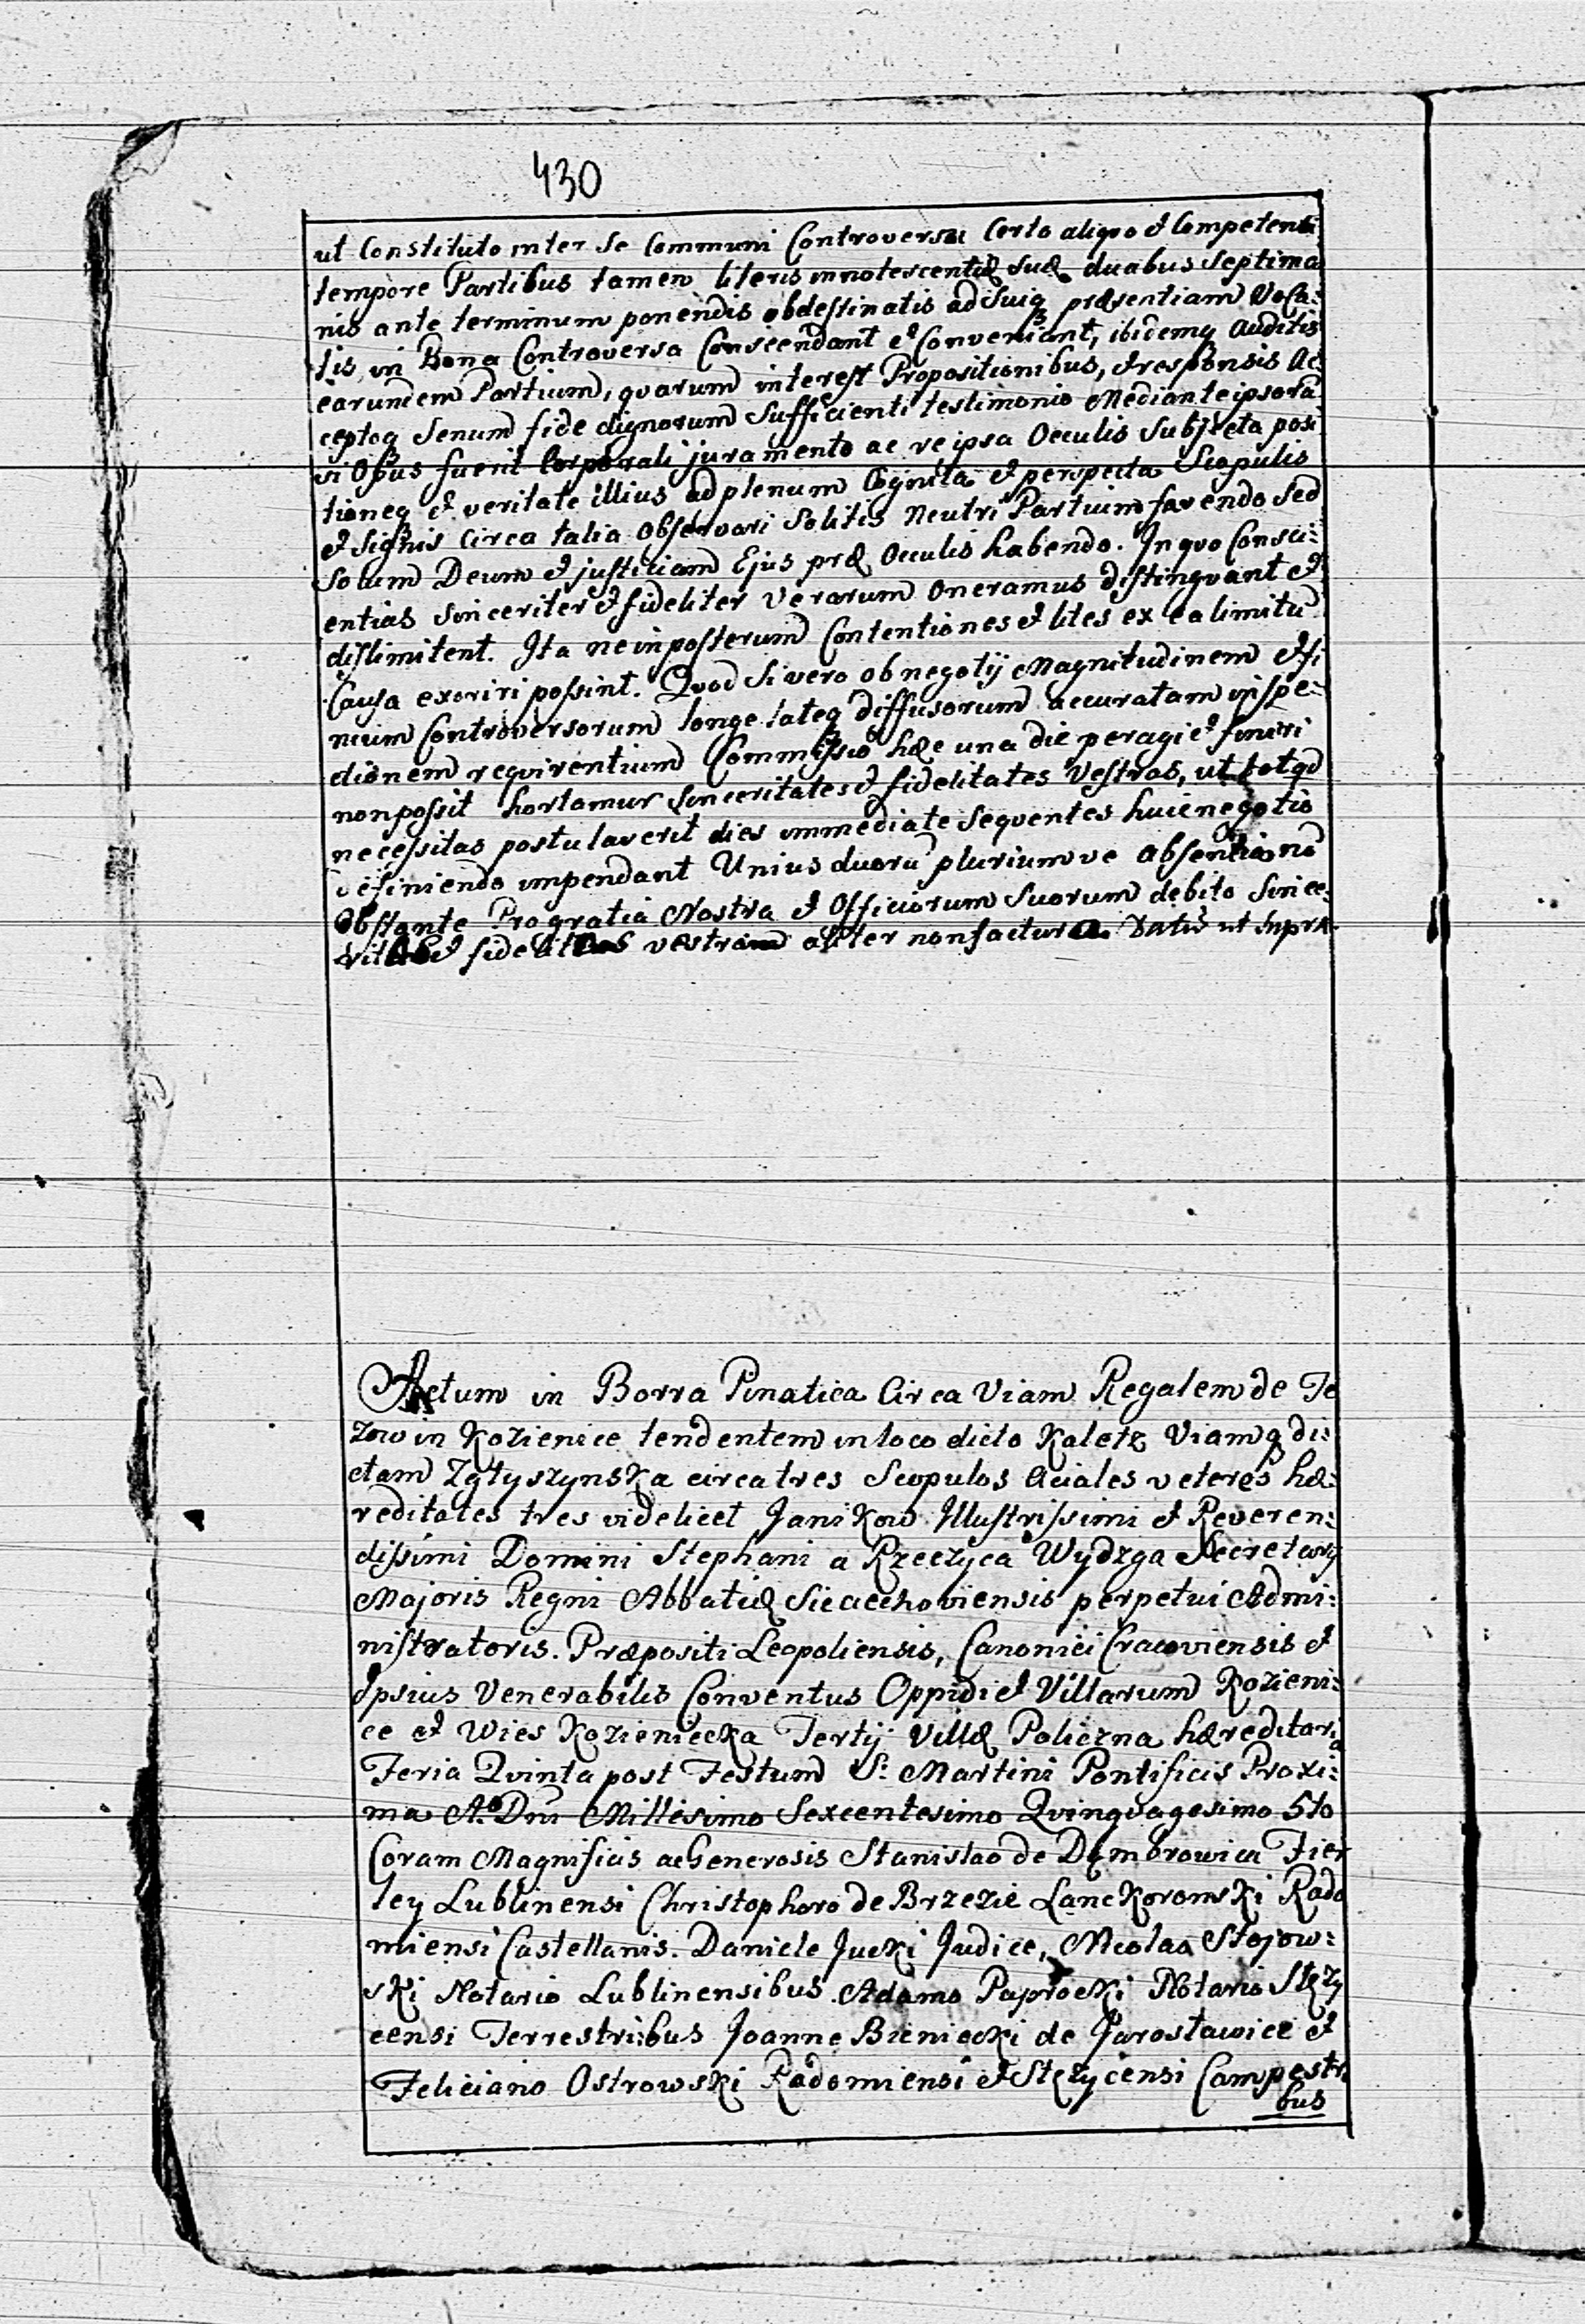 430
ut Constituto inter se Communi Controversa Certo aliquo et Competenti
tempore Partibus tamen literis innotescentiæ suæ duabus Septima
nis ante terminum ponendis obdestinatis ad Suiq præsentiam Voca:
tis, in Bona Controversa Conscendant et Conveniant, ibidemq Auditis
earundem Partium, quarum interest Propositionibus, et responsis Ac:
ceptoq Senum fide dignorum Sufficienti testimonio Mediante ipsorũ
si Opus fuerit Corporali juramento ac re ipsa Occulis Subjecta posi
tioneq et veritate illius ad plenum Cognita et perspecta Scopulis
et Signis Circa talia Observari Solitis Neutri Partium favendo Sed
Solum Deum et justitiam Ejus præ Occulis habendo. In quo Consci:
entias Sinceriter et fideliter Verarum Oneramus distinguant et
dislimitent. Ita ne in posterum Contentiones et lites ex ea limitũ
Causa exoriri possint. Quod Si vero ob negotij Magnitudinem et fi
nium Controversorum longe lateq diffusorum accuratam inspe:
ctionem requirentium Commissio hæc una die peragi et finiri
non possit hortamur Sinceritates et fidelitates Vestras, ut totqd
necessitas postulaverit dies immediate Sequentes huic negotio
definiendo impendant Unius duorũ pluriumve absentia nõ
Obstante Pro gratia Nostra et Officiorum Suorum debito Since:
et fidelitas vestram aliter non factura. Datũ ut Supra.
Actum in Borra Pinatica Circa Viam Regalem de Je
zow in Kozienice tendentem in loco dicto Kaletz Viamq di:
ctam Zgtyszynska circa tres Scopulos Aciales veteres hæ:
reditates tres videlicet Janikow Illustrissimi et Reveren:
dissimi Domini Stephani a Rzeczyca Wydzga Secretarij
Majoris Regni Abbatiæ Sieciechoviensis perpetui Admi:
nistratoris. Præpositi Leopoliensis, Canonici Cracoviensis et
Ipsius Venerabilis Conventus Oppidi et Villarum Kozieni:
ce et Wies Kozieniecka Tertij Villæ Policzna hæreditaria
Feria Quinta post Festum S: Martini Pontificis Proxi:
ma Aº Dni Millesimo Sexcentesimo Quinquagesimo 5to
Coram Magnificis ac Generosis Stanislao de Dąmbrowica Fier
ley Lublinensi Christophoro de Brzezie Lanckoronski Rado
miensi Castellanis. Daniele Jucki Judice, Nicolao Stojow:
ski Notario Lublinensibus Adamo Paprocki Notario Stęzy
censi Terrestribus Joanne Bieniecki de Jarosławice et
Feliciano Ostrowski Radomiensi et Stęzycensi Campestri
bus